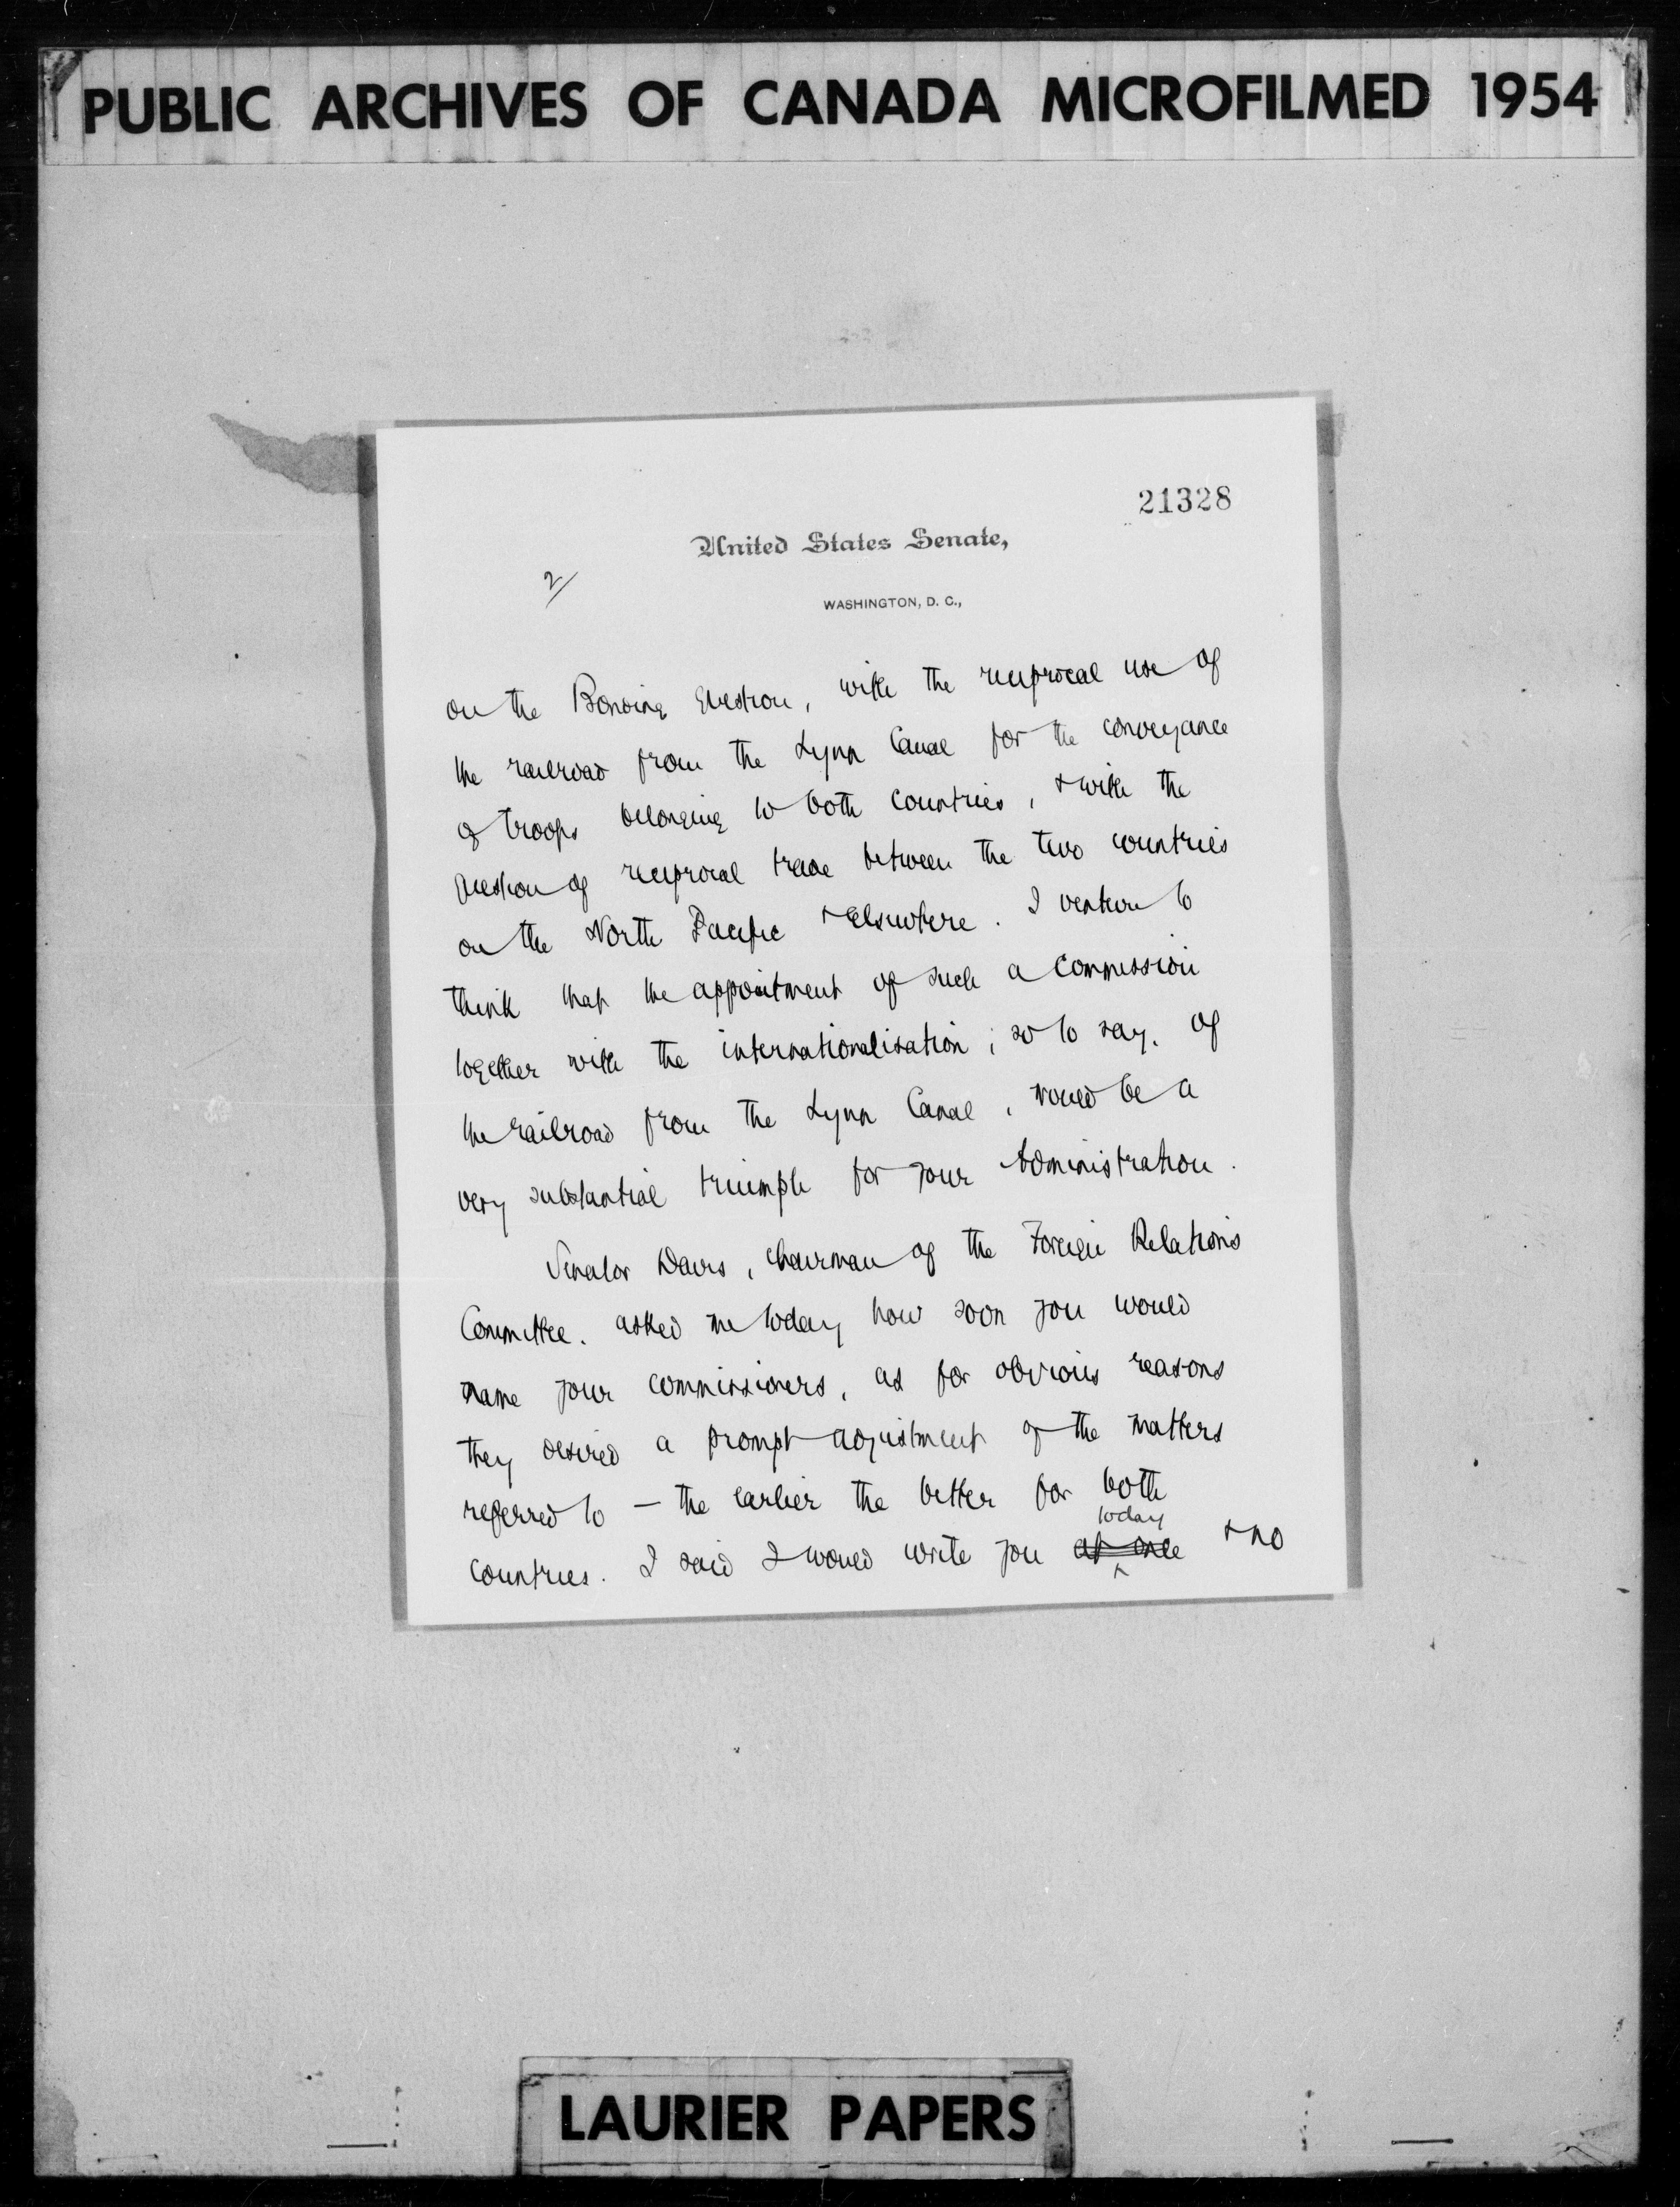 PUBLIC ARCHIVES OF CANADA MICROFILMED 1954
21328
United States Senate,
2/
WASHINGTON, D. C.,
on the Bonding Question, with the reciprocal use of
the railroad from the Lynn Canal for the conveyance
of troops belonging to both countries, & with the
question of reciprocal trade between the two countries
on the North Pacific & Elsewhere. I venture to
think that the appointment of such a Commission
together with the internationalisation, so to say, of
the railroad from the Lynn Canal, would be a
very substantial triumph for your Administration.
Senator Davis, Chairman of the Foreign Relations
Committee, asked me today how soon you would
name your commissioners, as for obvious reasons
they desired a prompt adjustment of the matters
referred to — the earlier the better for both
today
countries. I said I would write you at once & no
LAURIER PAPERS